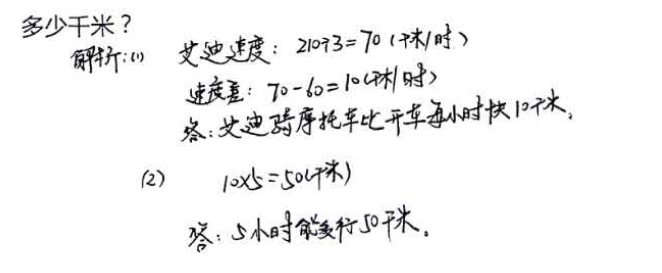 多少千米？
解析：(1) 艾迪速度：210÷3=70（千米/时）
速度差：70-60=10（千米/时）
答：艾迪骑摩托车比开车每小时快10千米。
(2) 10×5=50（千米）
答：5小时能多行50千米。